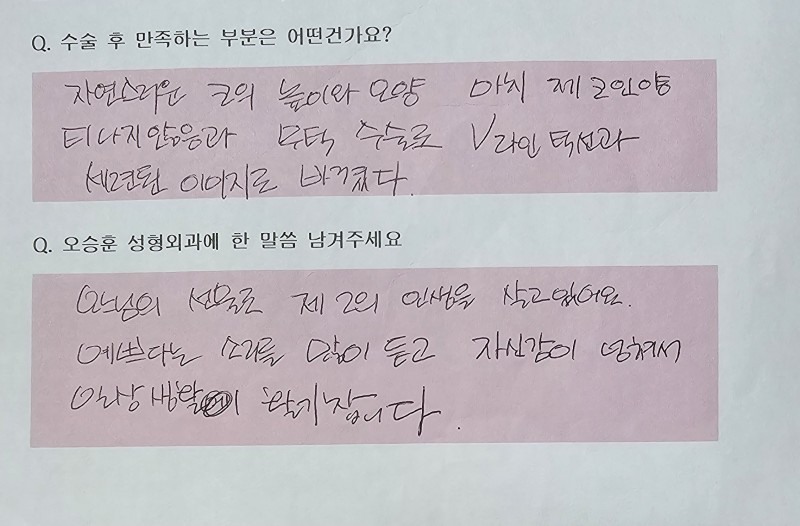 Q. 수술 후 만족하는 부분은 어떤건가요?
자연스러운 코의 높이와 모양 마치 제 코인양
티나지않음과 무턱 수술로 V라인 턱선과
세련된 이미지로 바뀌었다.
Q. 오승훈 성형외과에 한 말씀 남겨주세요
의 선물로 제 2의 인생을 살고있어요.
예쁘다는 소리를 많이 듣고 자신감이 넘쳐서
일상 생활이 활기찹니다.